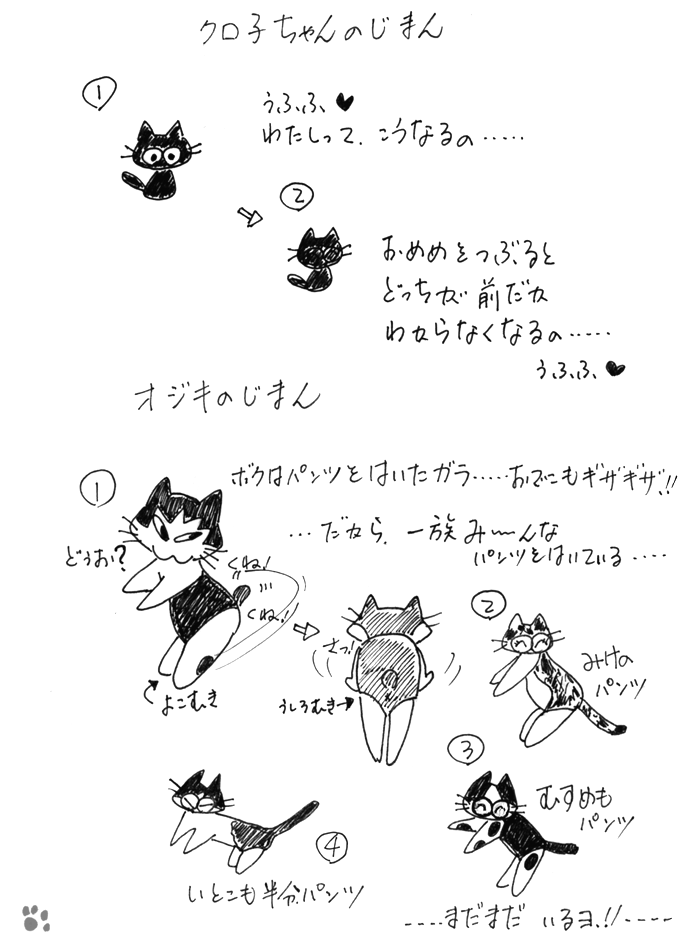 クロ子ちゃんのじまん
①
うふふ、♥
わたしって、こうなるの‥‥‥
②
おめめをつぶると
どっちが前だか
わからなくなるの‥‥‥
うふふ、♥
オジキのじまん
①
ボクはパンツをはいたガラ‥‥‥おでこもギザギザ!!
…だから、一族み〜んな
パンツをはいている‥‥
どぅおぃ?
くね!
くね!!
よこむき
さっ!
うしろむき
②
みけの
パンツ
③
むすめも
パンツ
④
いとこも半分パンツ
‥‥まだまだ いるヨ!!‥‥